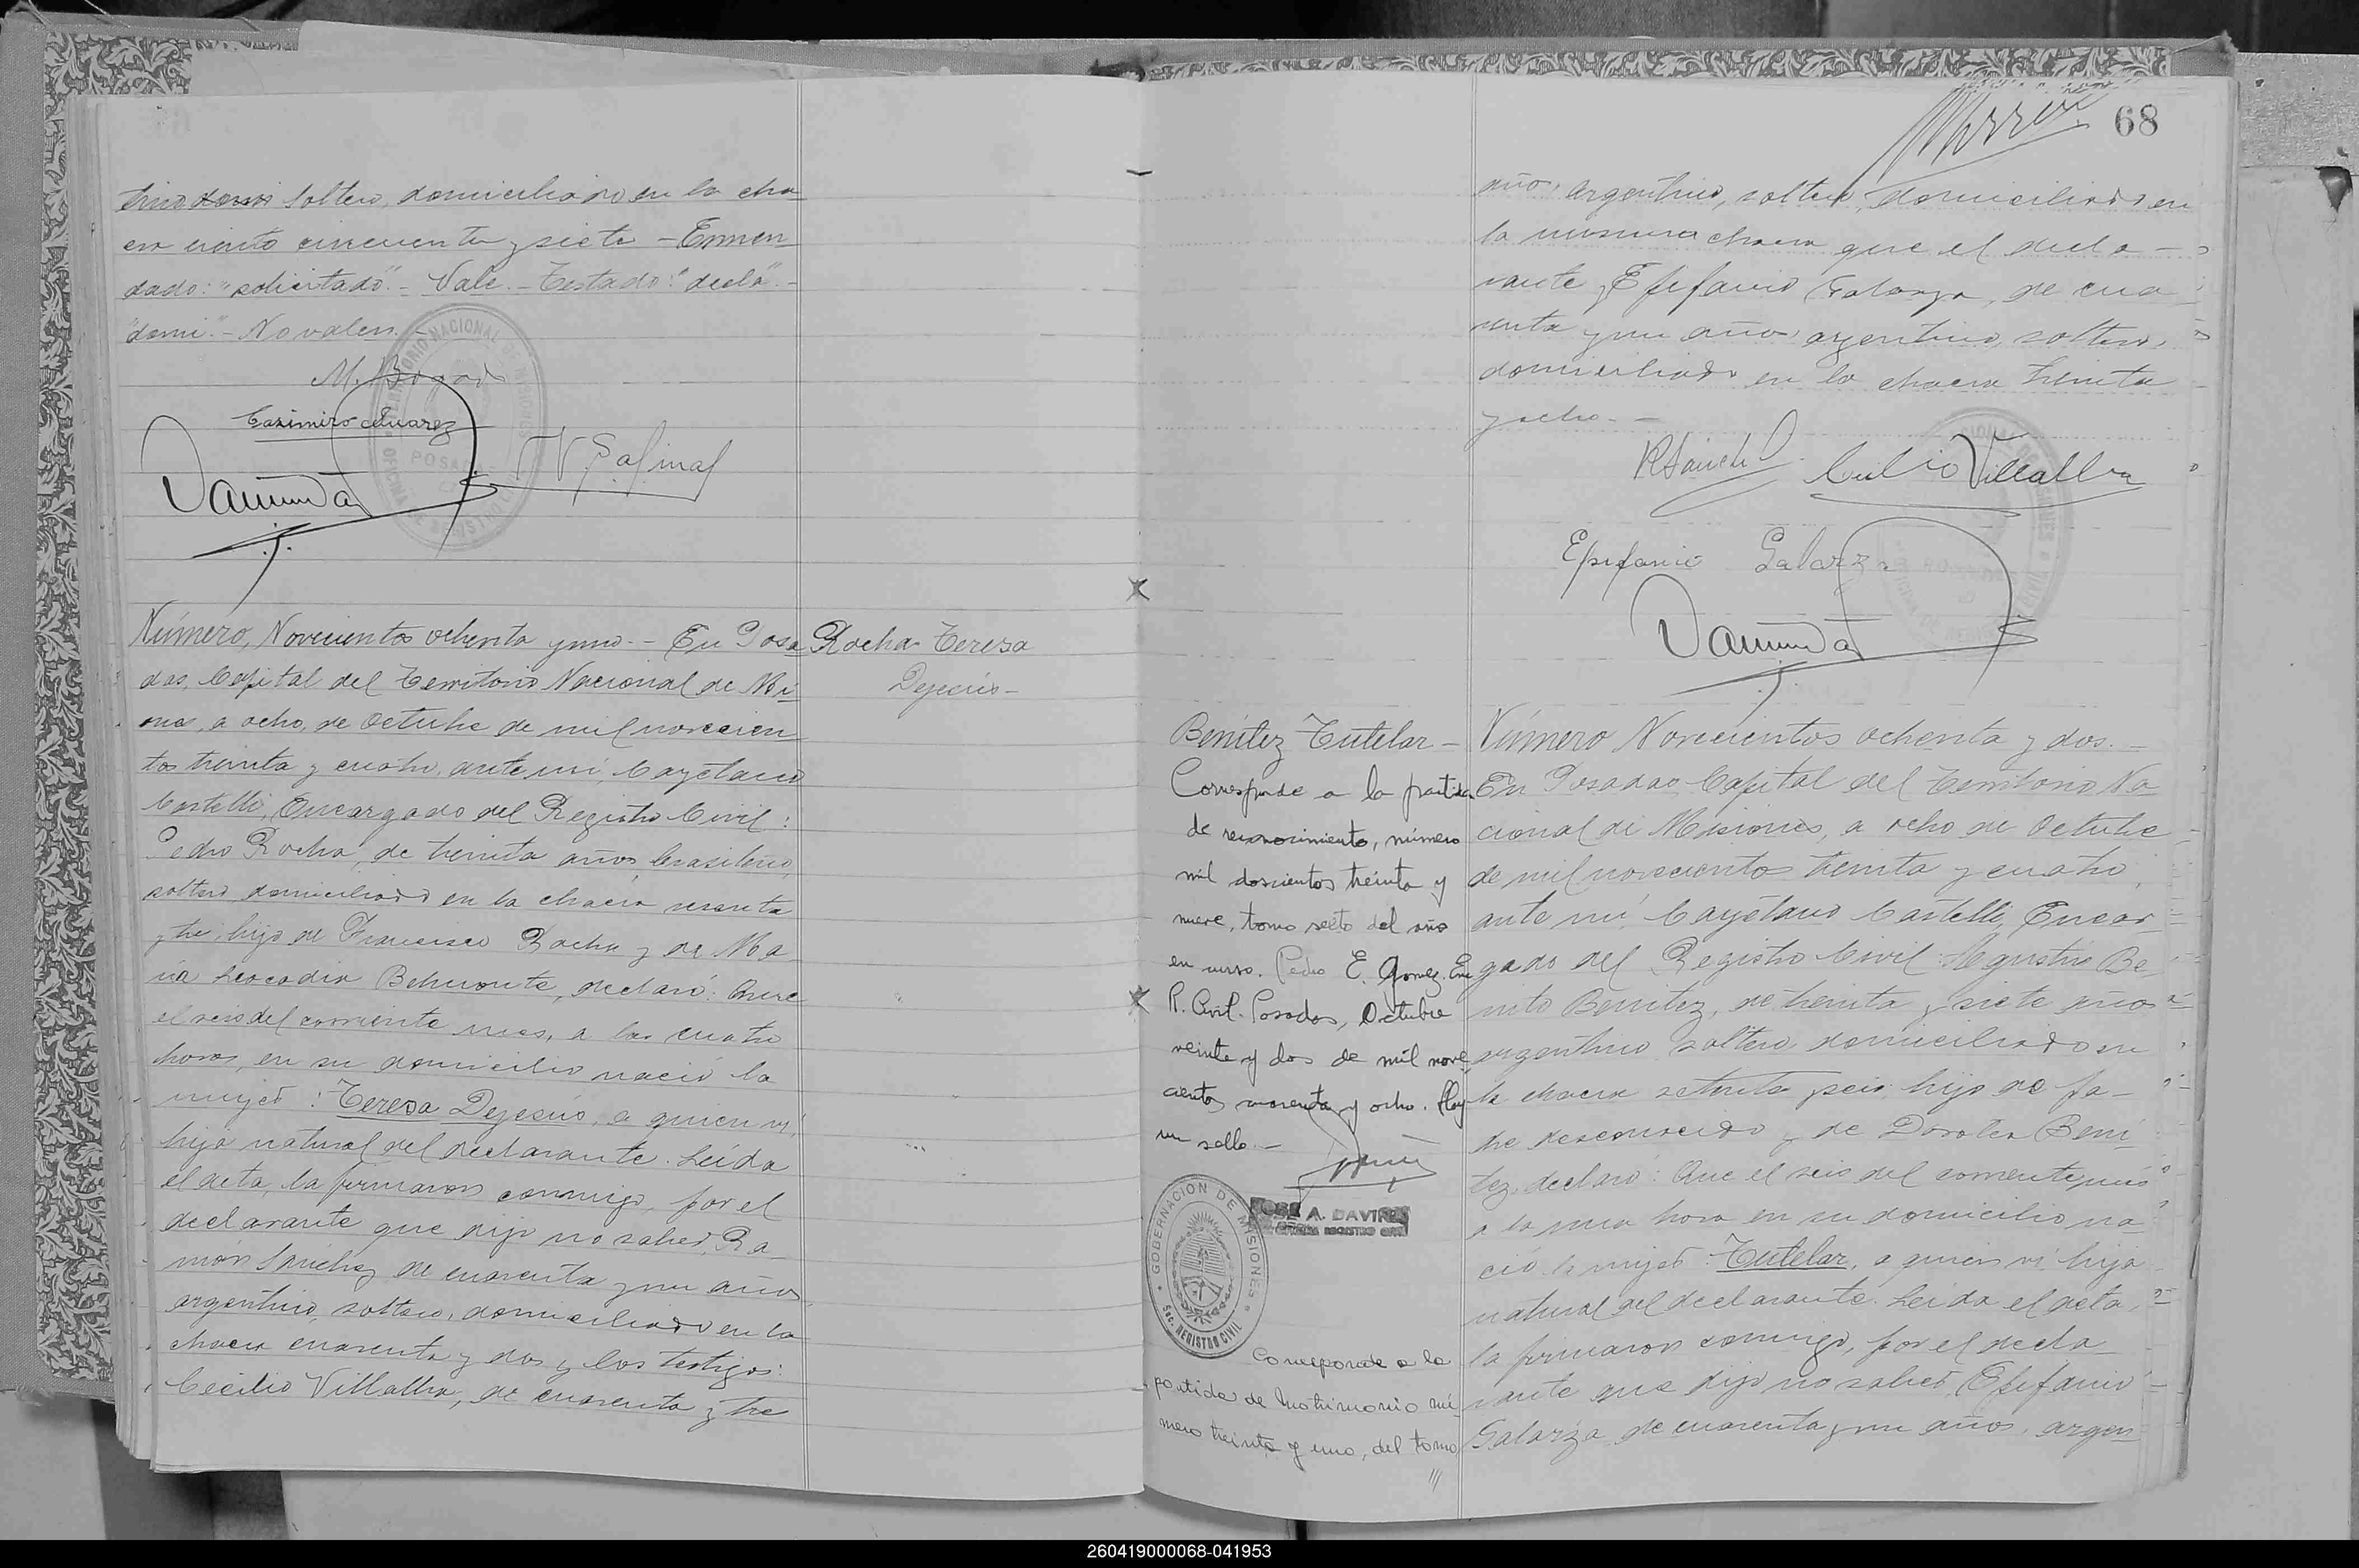 tino domi soltero, domiciliado en la cha
cra ciento cincuenta y siete - Enmen
dado: "solicitado" - Vale. - Testado: "decla" -
"domi" - No valen. -
M. Bogado
Casimiro Suarez
V. Salinas
POSADAS
Número, Novecientos ochenta y uno. - En Posa
das, Capital del Territorio Nacional de Mi
nes, a ocho, de Octubre de mil novecien
tos treinta y cuatro, ante mí, Cayetano
Castelli, Encargado del Registro Civil:
Pedro Rocha, de treinta años, brasileño,
soltero domiciliado en la chacra
y tre, hijo de Francisco Rocha y de Ma
ria Leocadia declaró: Que
el seis del corriente mes, a las cuatro
horas, en su domicilio nació la
mujer: Teresa Dejesús, a quien vi,
hija natural del declarante. Leída
el acta, la firmaron conmigo, por el
declarante que dijo no saber, Ra
món Sánchez de cuarenta y un años
argentino, soltero, domiciliado en la
chacra cuarenta y dos y los testigos:
Cecilio Villalba, de cuarenta y tre
Rocha Teresa
Dejesús -
68
años, argentino, soltero, domiciliado en
la misma chacra que el decla -
rante y Epifanio Galarza, de cua
renta y un años argentino, soltero,
domiciliado en la chacra treinta
y ocho. -
R Sánchez
Cecilio Villalba
Epifanio Galarza
Benítez Tutelar -
Corresponde a la partida
de reconocimiento, número
mil doscientos treinta y
nueve, tomo sexto del año
en curso. Pedro E. Gomez. Enc
R. Civil. Posadas, Octubre
veinte y dos de mil nove
cientos cuarenta y ocho. Hay
un sello. -
JOSE A. DAVIÑA
GOBERNACION DE MISIONES
Sec. REGISTRO CIVIL
Corresponde a la
partida de Matrimonio nú
mero treinta y uno, del tomo
///
Número Novecientos ochenta y dos. -
En Posadas Capital del Territorio Na
cional de Misiones, a ocho de Octubre
de mil novecientos treinta y cuatro,
ante mí, Cayetano Castelli, Encar
gado del Registro Civil: Agustín Be
nito Benitez, de treinta y siete años
argentino soltero domiciliado en
la chacra setenta y seis, hijo de pa-
dre desconocido y de Dorotea Bení
tez, declaró: Que el seis del corriente mes
a la una hora en su domicilio na
ció la mujer: Tutelar, a quien vi hija
natural del declarante. Leída el acta,
la firmaron conmigo, por el decla
rante que dijo no saber, Epifanio
Galarza de cuarenta y un años, argen
260419000068-041953